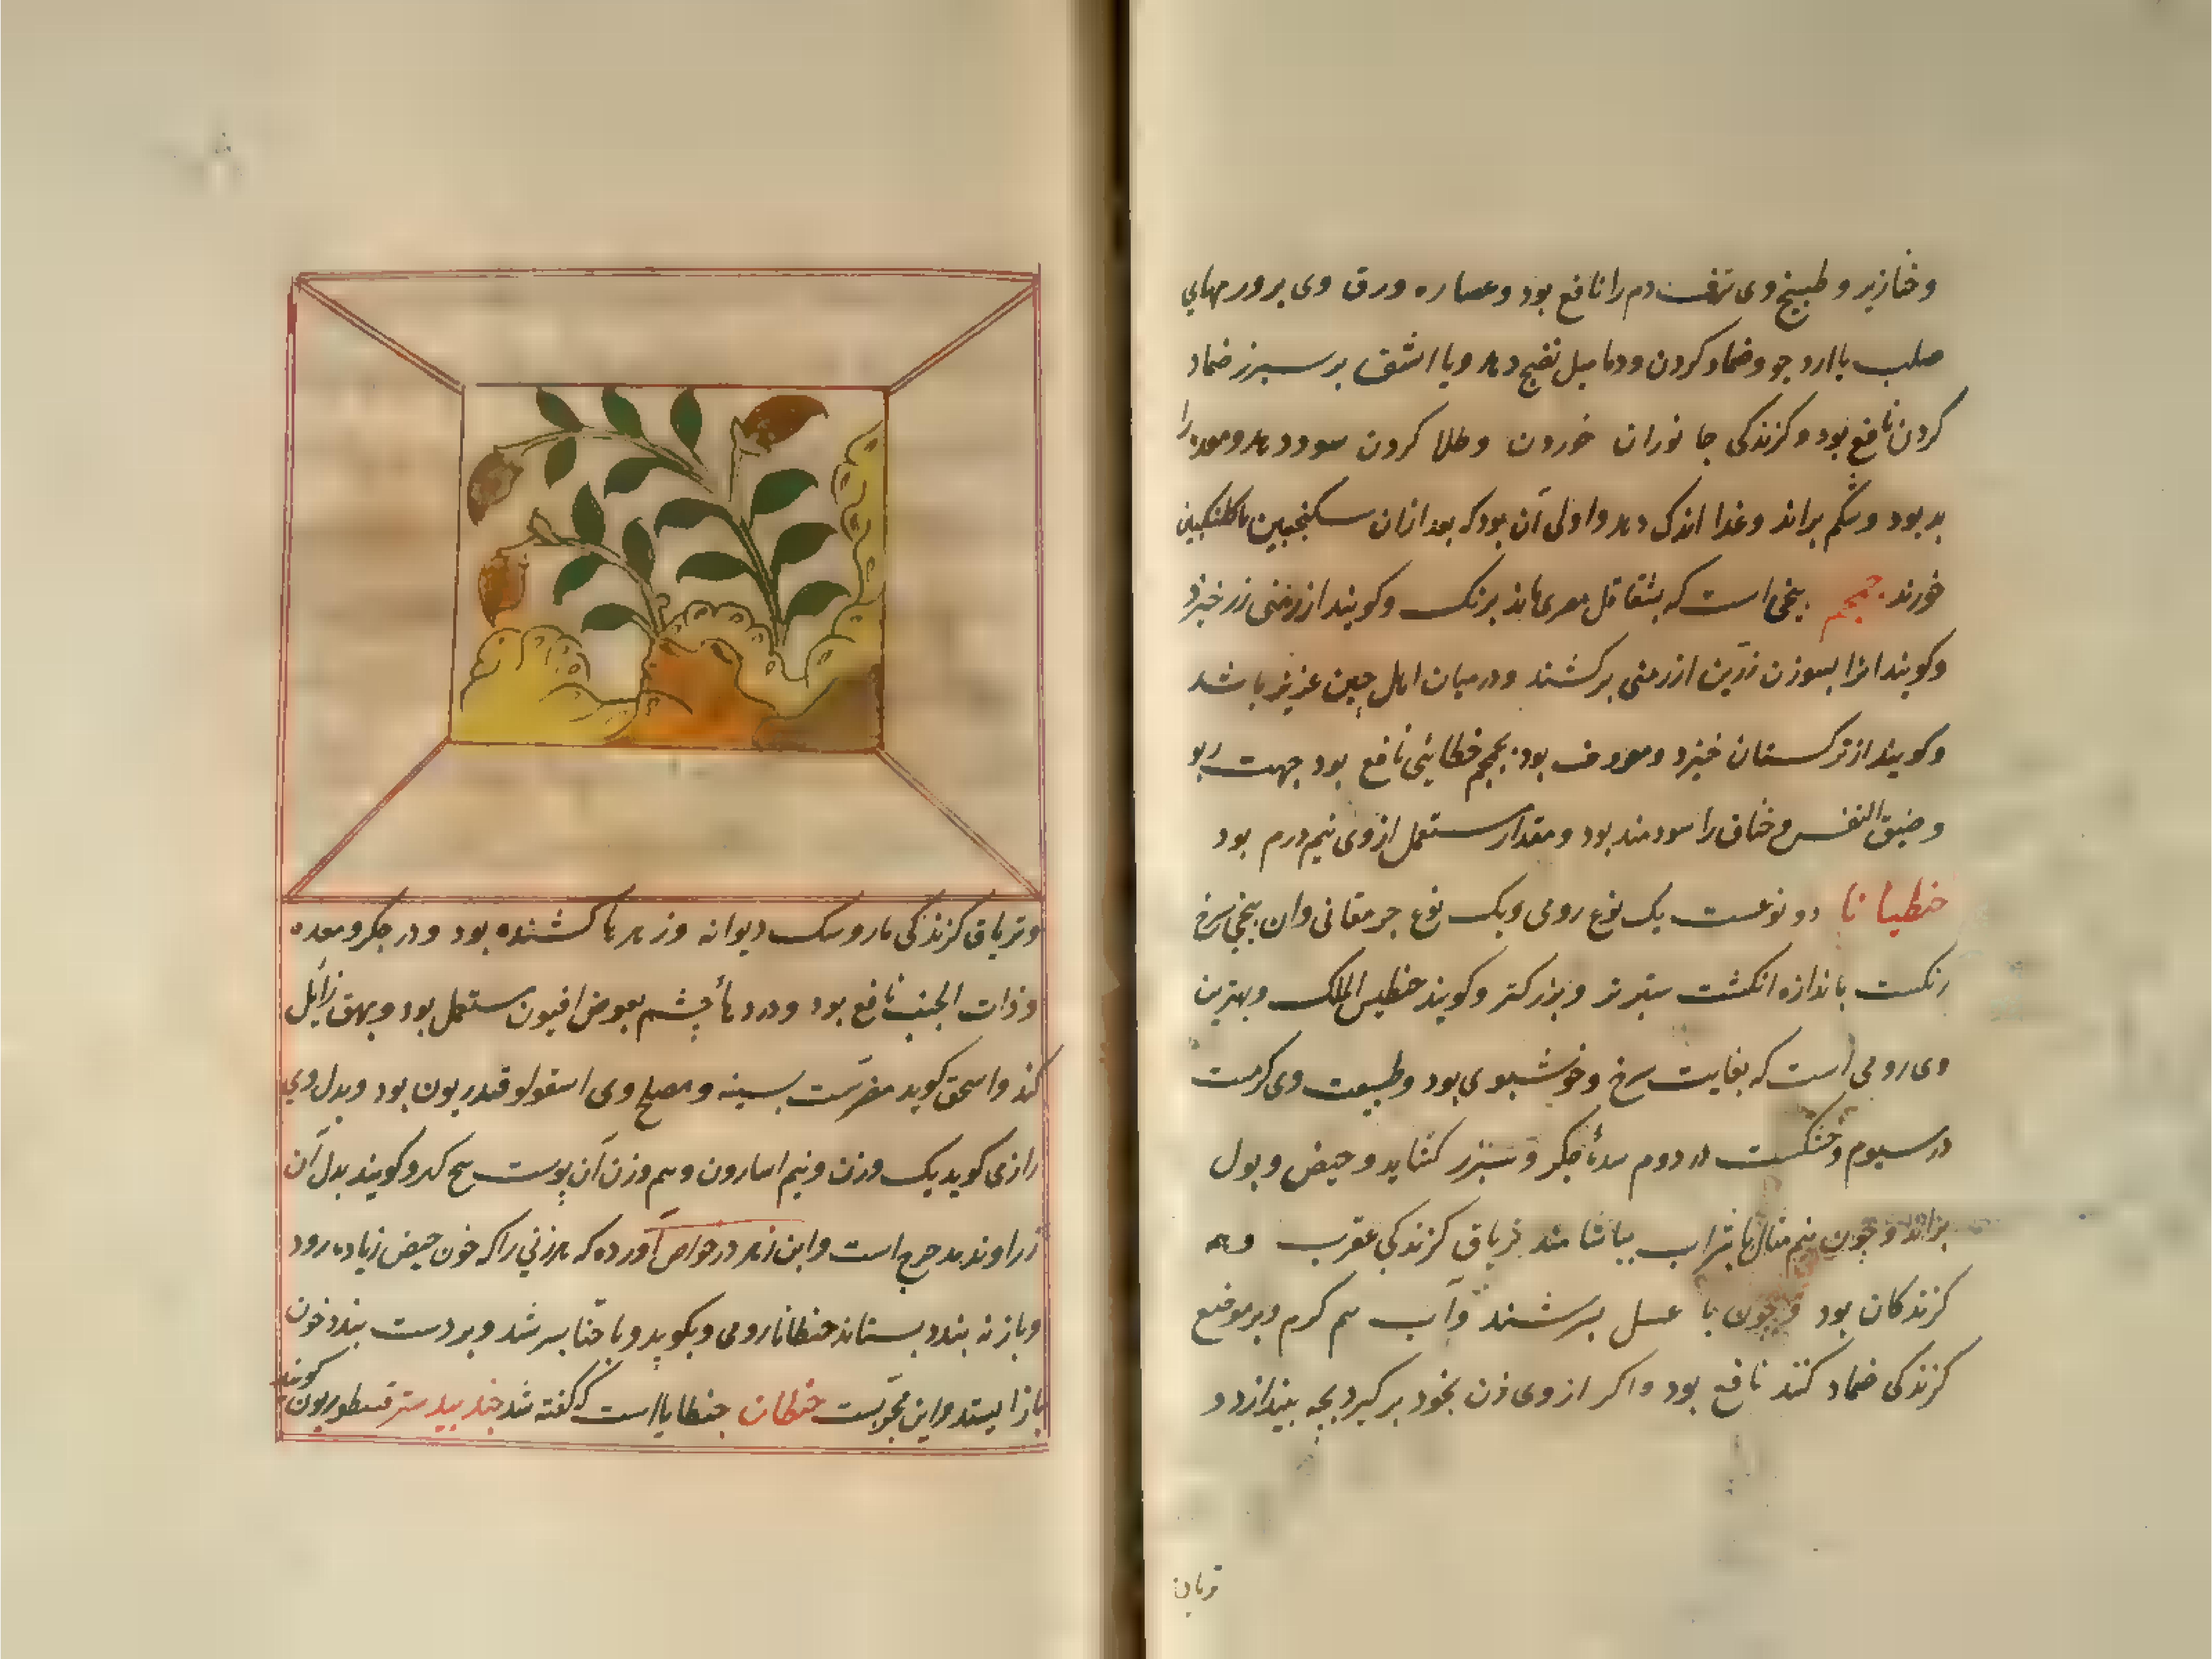 وخنازیر و طبیخ وی نزف دم را نافع بود و عصاره ورق وی بر ورمهای
صلب با ارد جو و ضماد کردن و دمامیل نضج دهد و با اشق بر سبرز ضماد
کردن نافع بود و کزندکی جانوران خوردن و طلا کردن سود دهد و معده را
بد بود و شکم براند و غذا اندک دهد و اولی آن بود که بعد ازان سکنجبین با کلنکبین
خورند جمجم بیخی است که بشقاقل مصری ماند برنک و کویند از زمینی زر خیزد
و کویند انرا بسوزن زرین از زمین برکشند و در میان اهل چین عزیز باشد
و کویند از ترکستان خیزد و معروف بود بجمجم خطایی نافع بود جهت ربو
و ضیق النفس و خناق را سودمند بود و مقدار مستعمل از وی نیم درم بود
جنطیانا دو نوعست یک نوع رومی و یک نوع جرمقانی وان بیخی سرخ
رنکست باندازه انکشت ستبرتر و بزرکتر و کویند جنطیس الملک و بهترین
وی رومی است که بغایت سرخ و خوشبوی بود و طبیعت وی کرمست
در سیوم و خشکست در دوم سدۀ جکر و سبرز کشاید و حیض و بول
براند و چون نیم مثقال با شراب بیاشامند تریاق کزندکی عقرب و همه
کزندکان بود و چون با عسل بسرشند و آب هم کرم و بر موضع
کزندکی ضماد کنند نافع بود و اکر از وی زن بخود برکیرد بچه بیندازد و
تریاق
و تریاق کزندکی مار و سک دیوانه و زهرها کشنده بود و درد جکر و معده
و ذات الجنب نافع بود و دردهأ چشم بعوض افیون مستعمل بود و بهق زایل
کند و اسحق کوید مضرست بسینه و مصلح وی اسقولوقندریون بود و بدل وی
رازی کوید یک وزن و نیم اسارون و هم وزن آن پوست بیخ کبر و کویند بدل آن
زراوند مدحرج است و ابن زهر در خواص آورده که هر زنی را که خون حیض زیاده رود
و باز نه بندد بستاند جنطیانا رومی و بکوبد و با حنا بسرشد و بر دست بندد خون
باز ایستد و این مجربست جنطیان جنطایا است که کفته شد جندبیدستر قسطوریون کویند